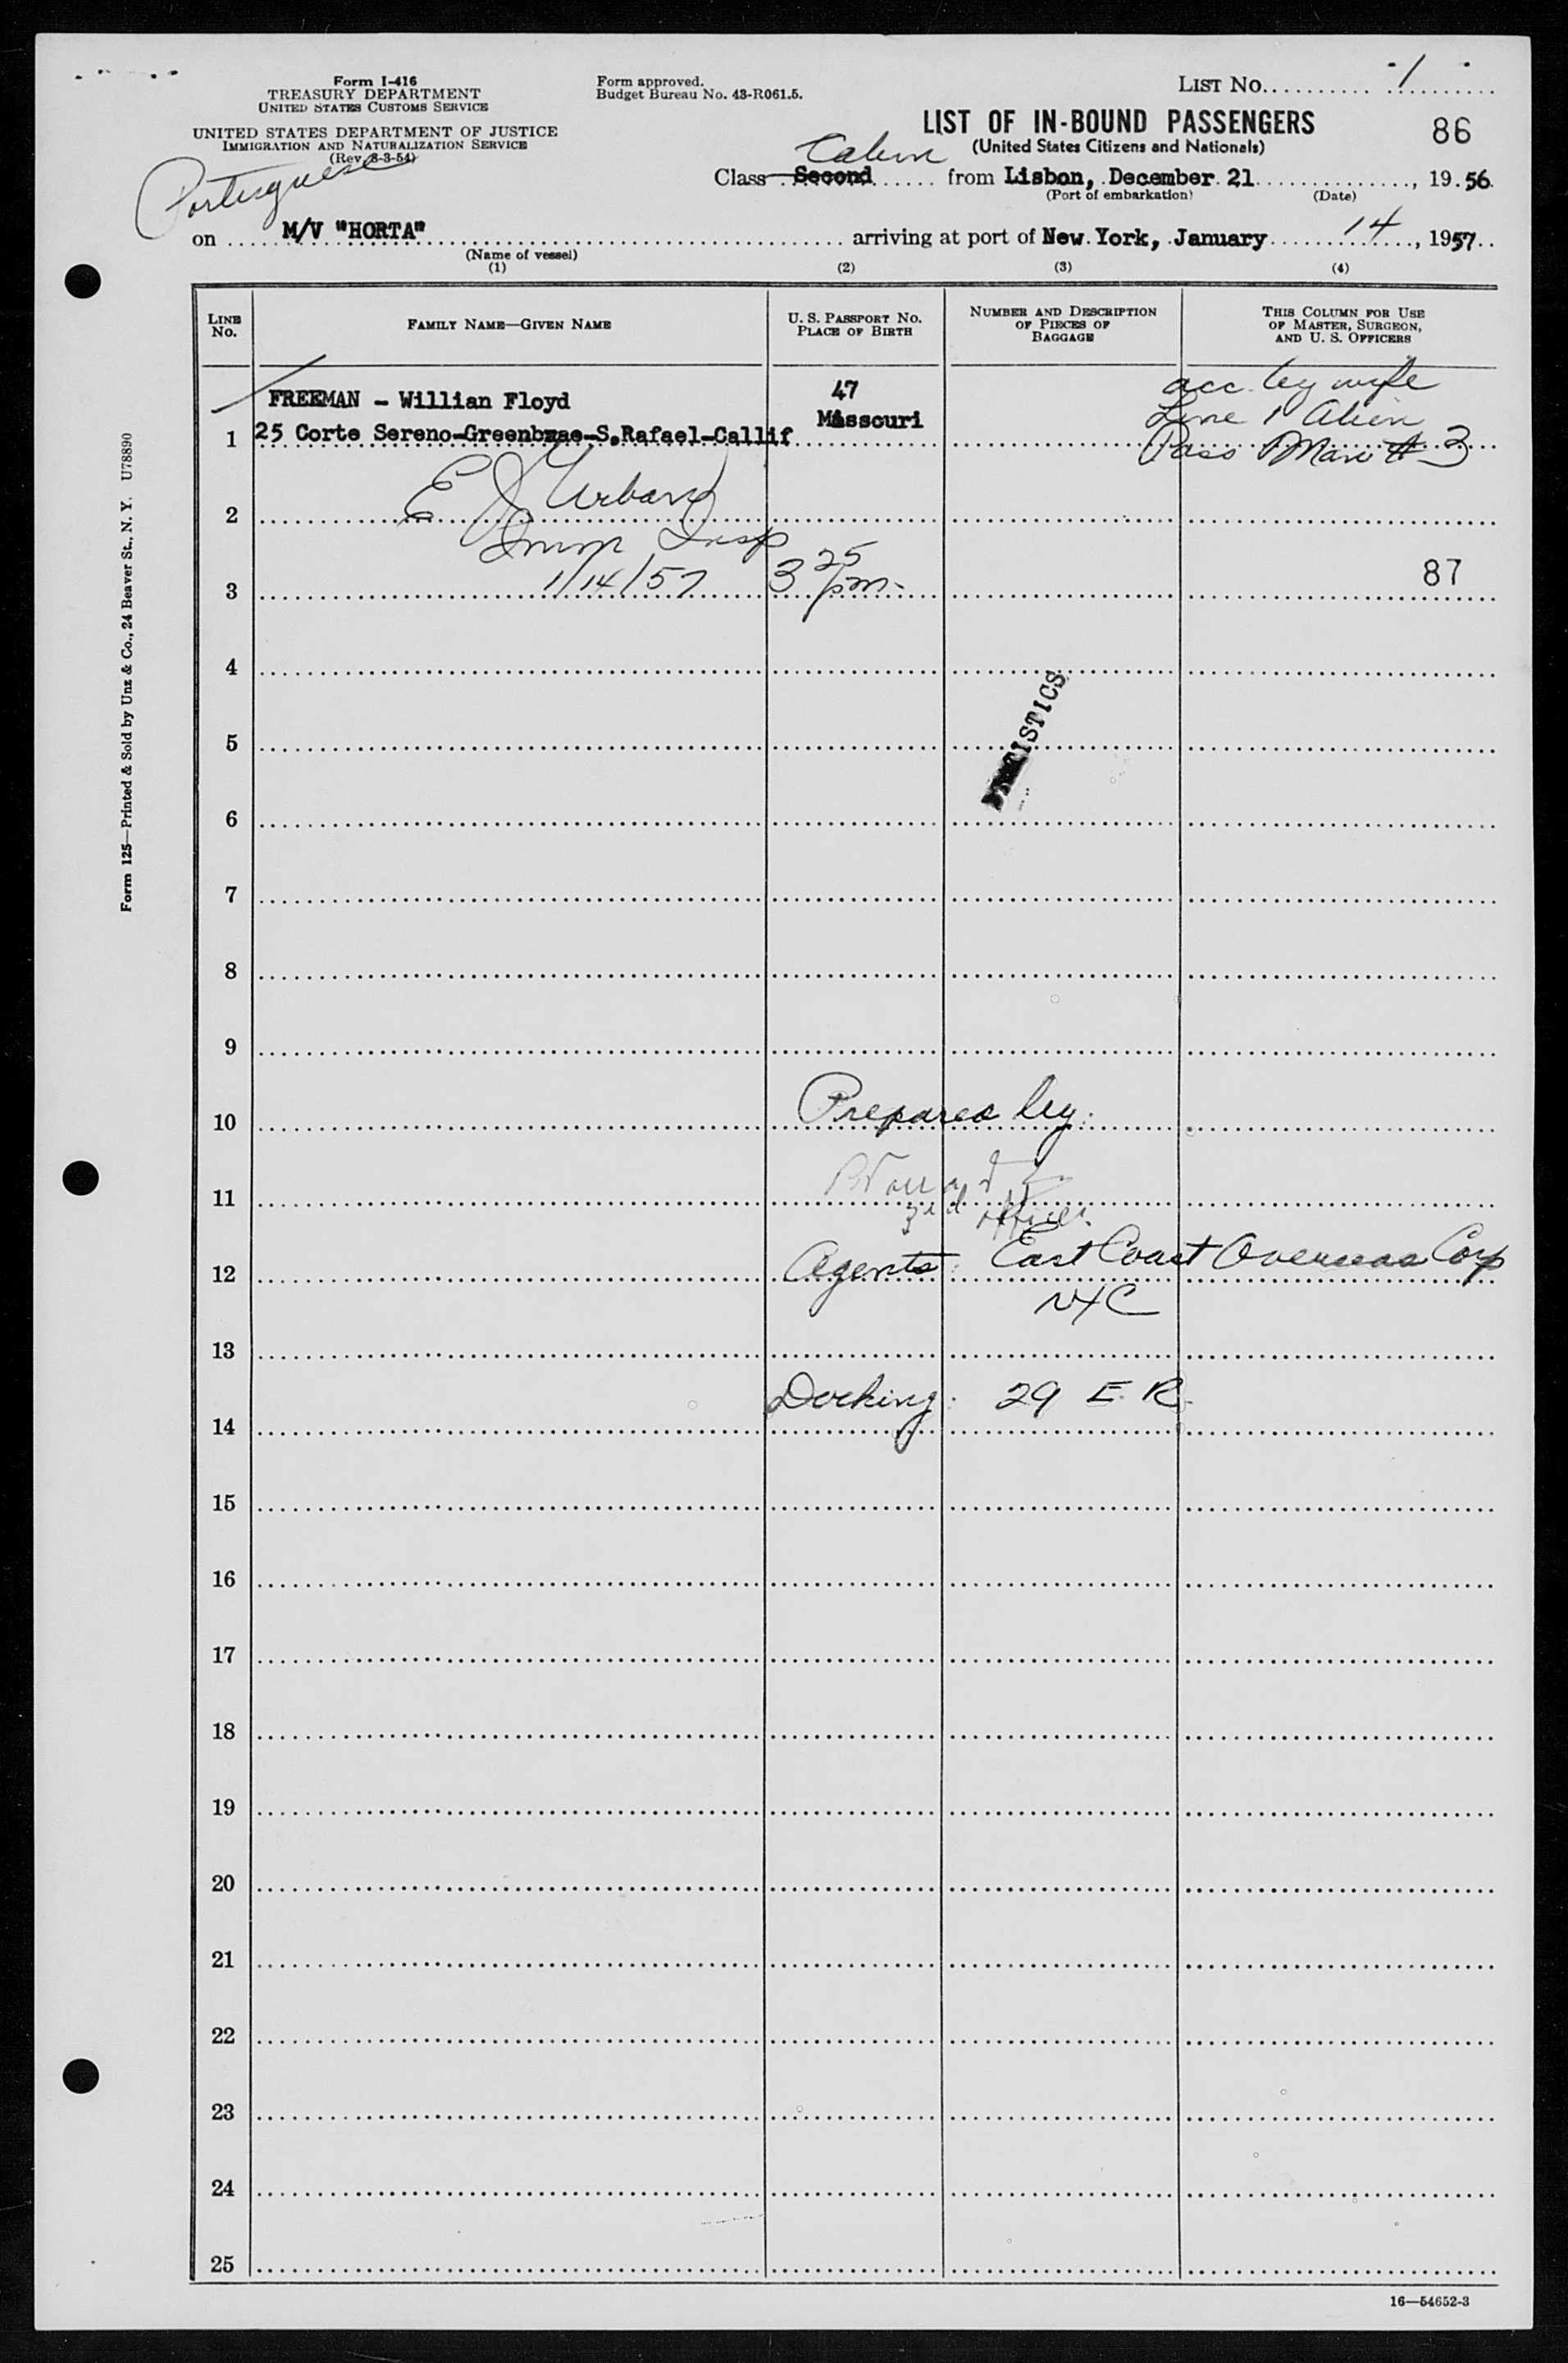 Form I-416
TREASURY DEPARTMENT
UNITED STATES CUSTOMS SERVICE
UNITED STATES DEPARTMENT OF JUSTICE
IMMIGRATION AND NATURALIZATION SERVICE
(Rev. 8-3-54)
Portuguese
Form approved.
Budget Bureau No. 43-R061.5.
LIST No. 1
LIST OF IN-BOUND PASSENGERS
(United States Citizens and Nationals)
86
Cabin
Class Second from Lisbon, December 21, 19.56.
(Port of embarkation) (Date)
on M/V "HORTA" arriving at port of New York, January 14, 1957
(Name of vessel)
(1) (2) (3) (4)
LINE No. FAMILY NAME—GIVEN NAME U. S. PASSPORT No. PLACE OF BIRTH NUMBER AND DESCRIPTION OF PIECES OF BAGGAGE THIS COLUMN FOR USE OF MASTER, SURGEON, AND U. S. OFFICERS
FREEMAN - Willian Floyd 47 acc. by wife
Missouri Line 1 Alien
1 25 Corte Sereno-Greenbrae-S.Rafael-Callif Pass Mani # 3
2 E J Urban
Imm Insp
3 1/14/57 3 25 pm. 87
4
STATISTICS
5
6
7
8
9
10 Prepared by:
11
3rd officer.
12 Agents: East Coast Overseas Corp
NYC
13
14 Docking: 29 E. R.
15
16
17
18
19
20
21
22
23
24
25
16—54652-3
Form 125—Printed & Sold by Unz & Co., 24 Beaver St., N. Y. U78890